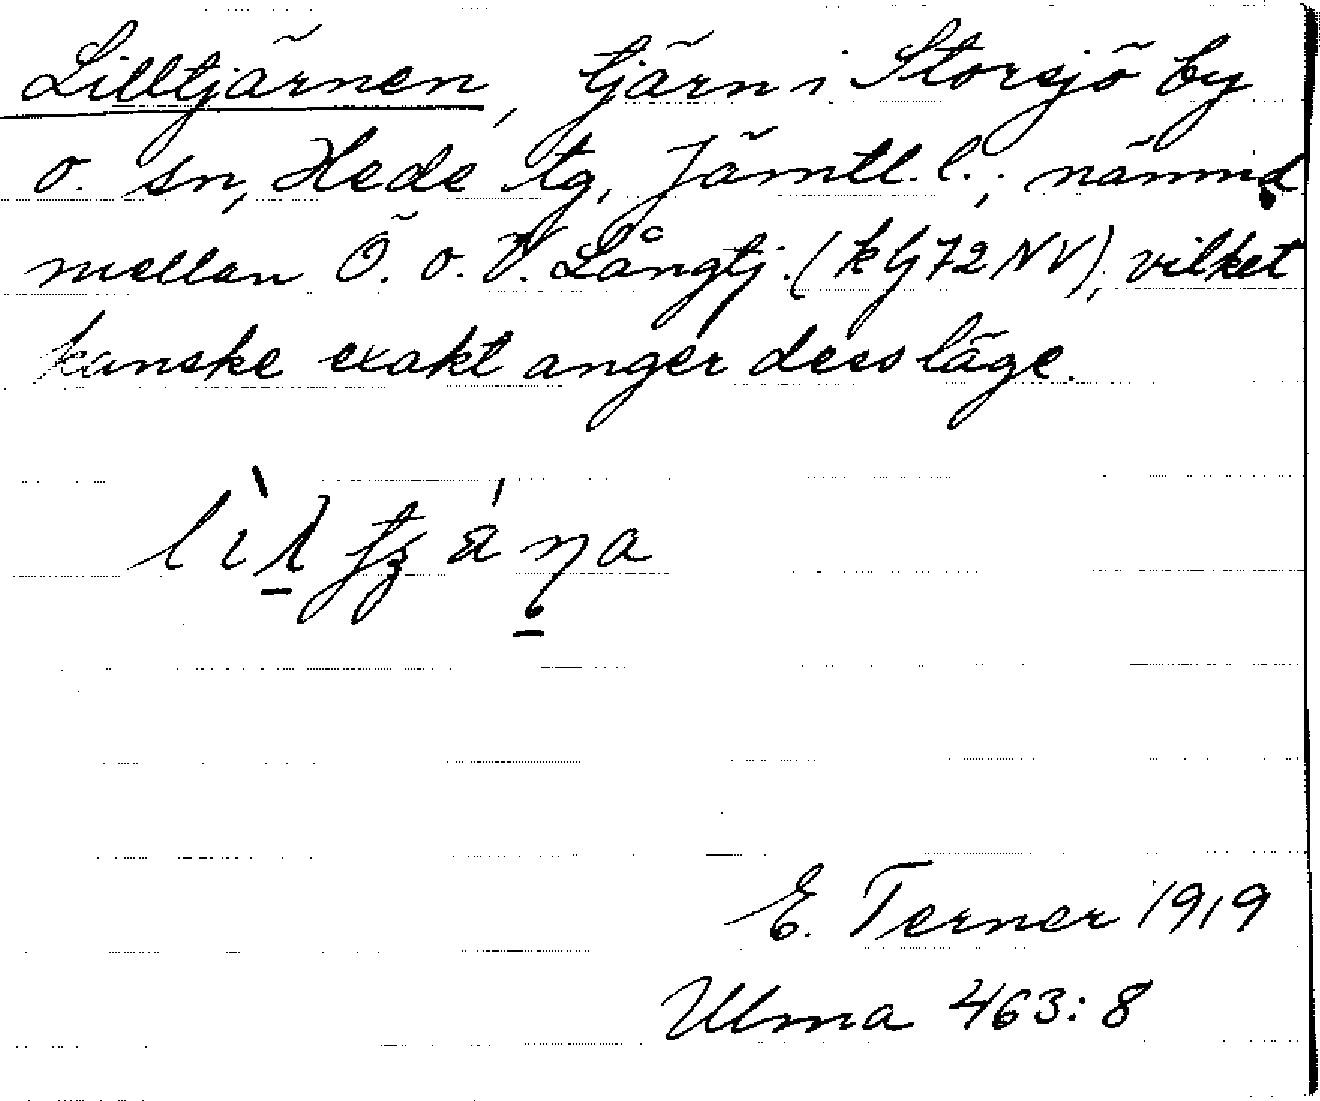 Lilltjärnen, tjärn i Storsjö by
o. sn, Hede tg, Jämtl. l.; nämnd
mellan Ö. o. V. Långtj. (kbl 72 NV), vilket
kanske exakt anger dess läge.
E. Terner 1919
Ulma 463:8